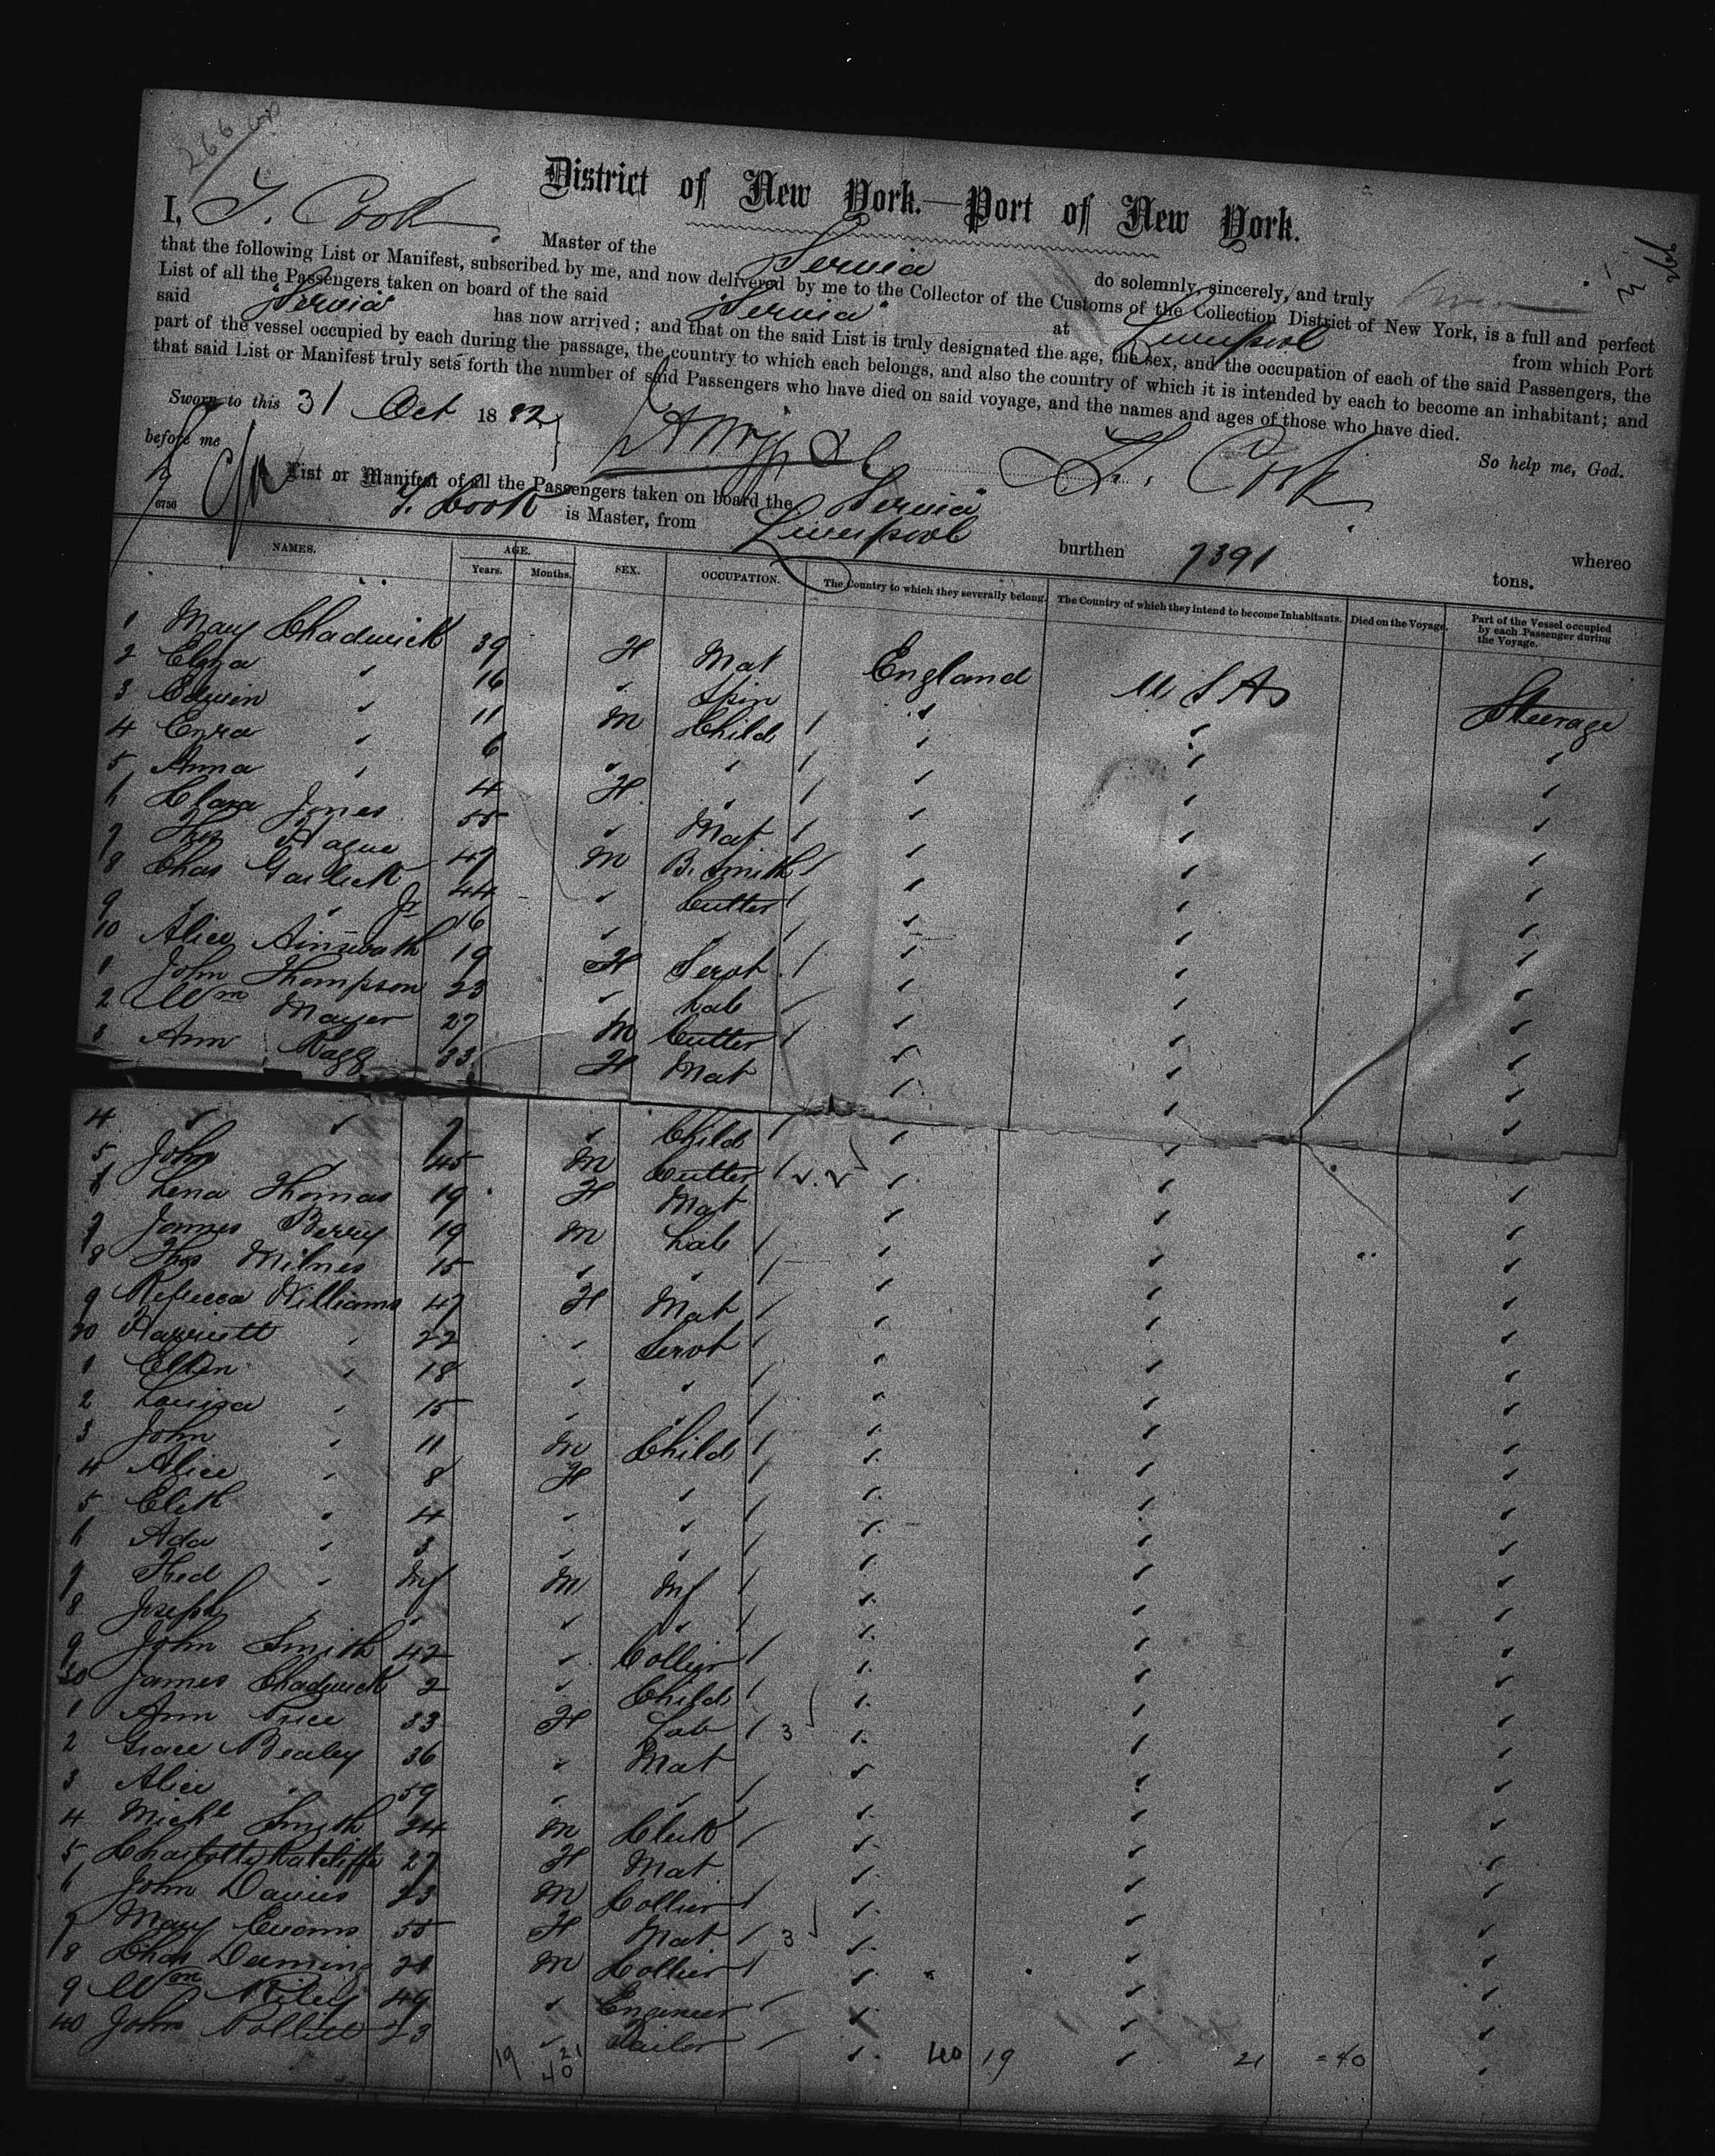 266
District of New York.—Port of New York.
I, T. Cook Master of the Servia do solemnly, sincerely, and truly
that the following List or Manifest, subscribed by me, and now delivered by me to the Collector of the Customs of the Collection District of New York, is a full and perfect
List of all the Passengers taken on board of the said "Servia" at Liverpool from which Port
said "Servia" has now arrived; and that on the said List is truly designated the age, the sex, and the occupation of each of the said Passengers, the
part of the vessel occupied by each during the passage, the country to which each belongs, and also the country of which it is intended by each to become an inhabitant; and
that said List or Manifest truly sets forth the number of said Passengers who have died on said voyage, and the names and ages of those who have died.
So help me, God.
Sworn to this 31 Oct 1882
before me
T. Cook
List or Manifest of all the Passengers taken on board the "Servia" whereo
6756
T. Cook is Master, from Liverpool burthen 7391 tons.
NAMES. AGE. Years. Months. SEX. OCCUPATION. The Country to which they severally belong. The Country of which they intend to become Inhabitants. Died on the Voyage. Part of the Vessel occupied by each Passenger during the Voyage.
1 Mary Chadwick 39 F Mat England U S A Steerage
2 Eliza " 16 " Spin " " "
3 Edwin " 11 M Child " " "
4 Ezra " 6 " " " " "
5 Anna " 4 F " " " "
6 Clara Jones 55 " Mat " " "
7 Thos Hague 47 M B. Smith " " "
8 Chas Garlick 44 " Cutter " " "
9 " " Jr 16 " " " " "
10 Alice Ainsworth 19 F Servt " " "
1 John Thompson 23 " Lab " " "
2 Wm Mayer 27 M Cutter " " "
3 Ann Ragg 33 F Mat " " "
4 " " 7 " Child " " "
5 John " 45 M Cutter " " "
6 Lena Thomas 19 F Mat " " "
7 James Berry 19 M Lab " " "
8 Thos Milnes 15 " " " " "
9 Rebecca Williams 47 F Mat " " "
20 Harriett " 22 " Servt " " "
1 Ellen " 18 " " " " "
2 Louisa " 15 " " " " "
3 John " 11 M Child " " "
4 Alice " 8 F " " " "
5 Elith " 4 " " " " "
6 Ada " 3 " " " " "
7 Fred " Inf M Inf " " "
8 Joseph " " " " " " "
9 John Smith 42 " Collier " " "
30 James Chadwick 2 " Child " " "
1 Ann Price 33 F Lab 3 " " "
2 Grace Bealey 36 " Mat " " "
3 Alice " 59 " " " " "
4 Michl Smyth 24 M Clerk " " "
5 Charlotte Ratcliffe 27 F Mat " " "
6 John Davies 23 M Collier " " "
7 Mary Evans 55 F Mat 3 " " "
8 Chas Deeming 21 M Collier " " "
9 Wm Riley 49 " Engineer " " "
40 John 23 " Tailor " " "
19 21 40 40 19 21 = 40